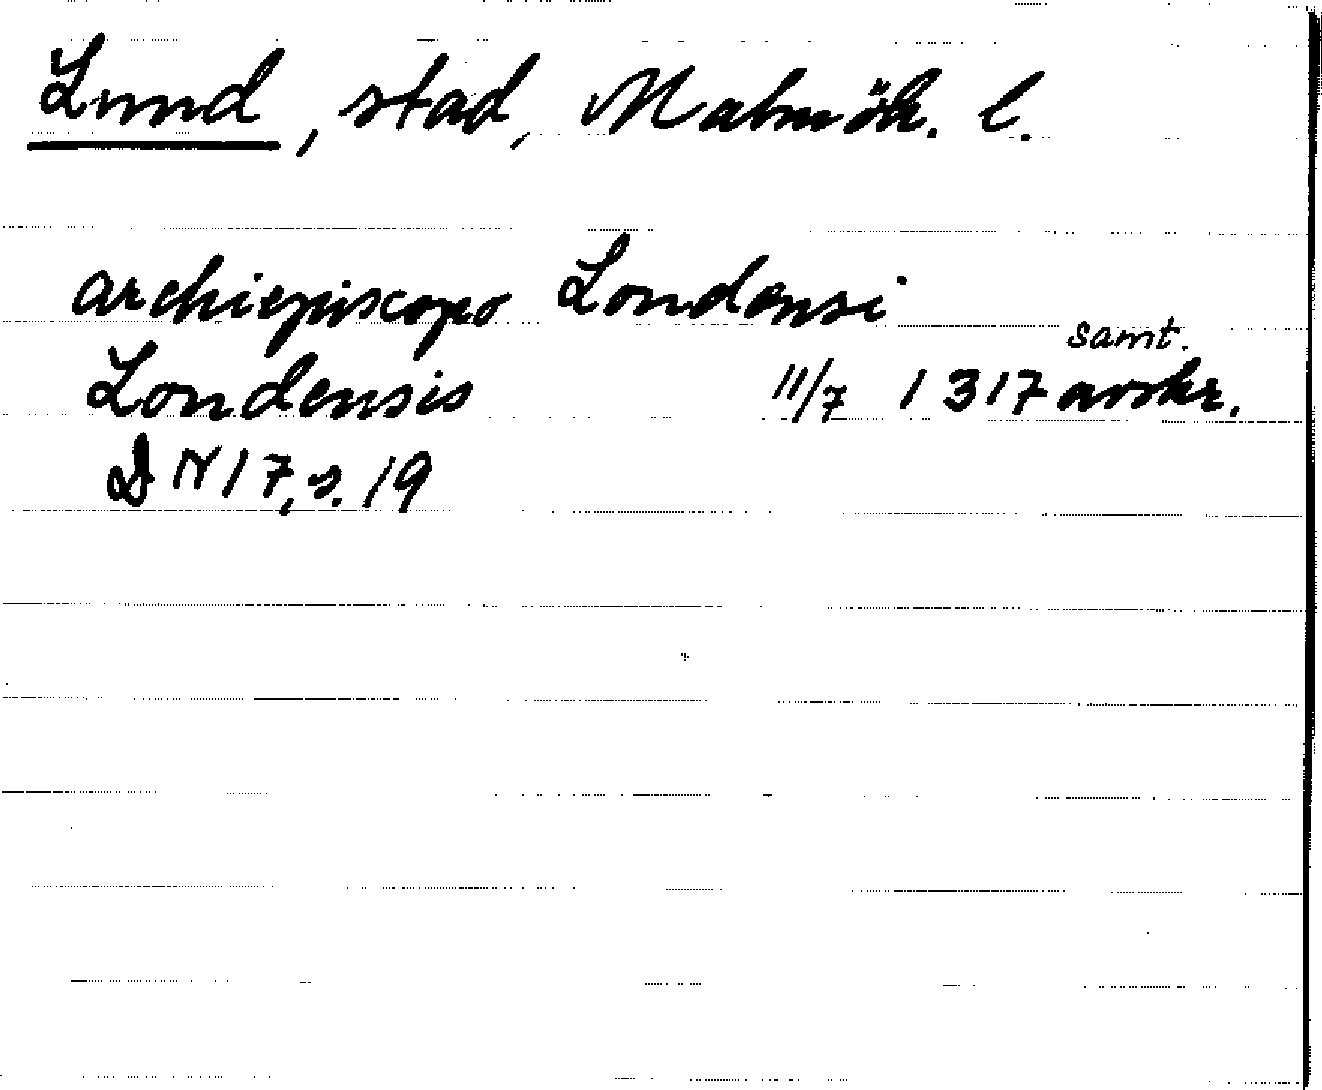 Lund, stad, Malmöh. l.
archiepiscopo Londensi
samt.
Londensis 11/7 1317 avskr.
DN 17, s. 19